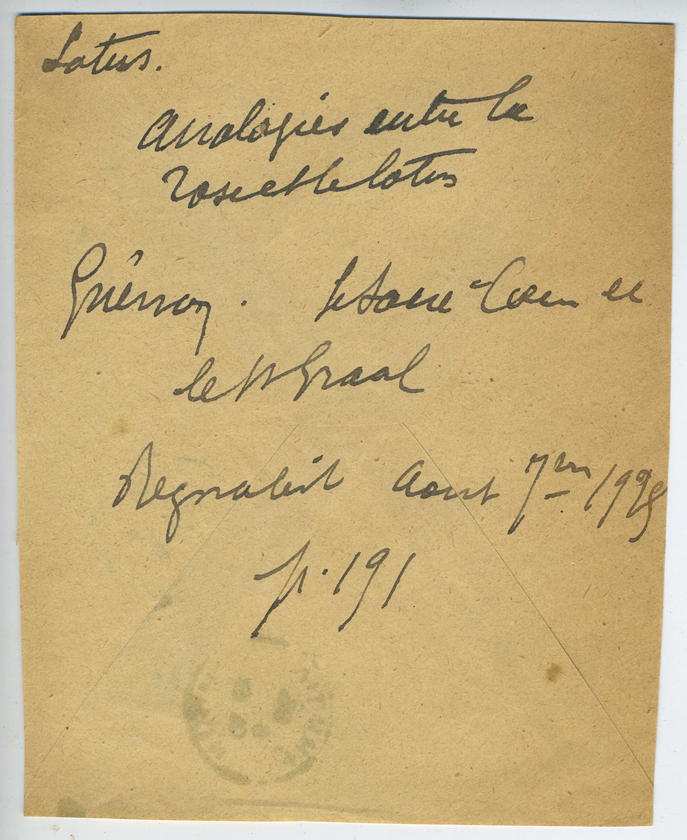 Lotus.
Analogies entre la
rose et le lotus
Guénon. le Sacré-Coeur et
le St Graal
Regnabit Aout 7bre 1925
p. 191